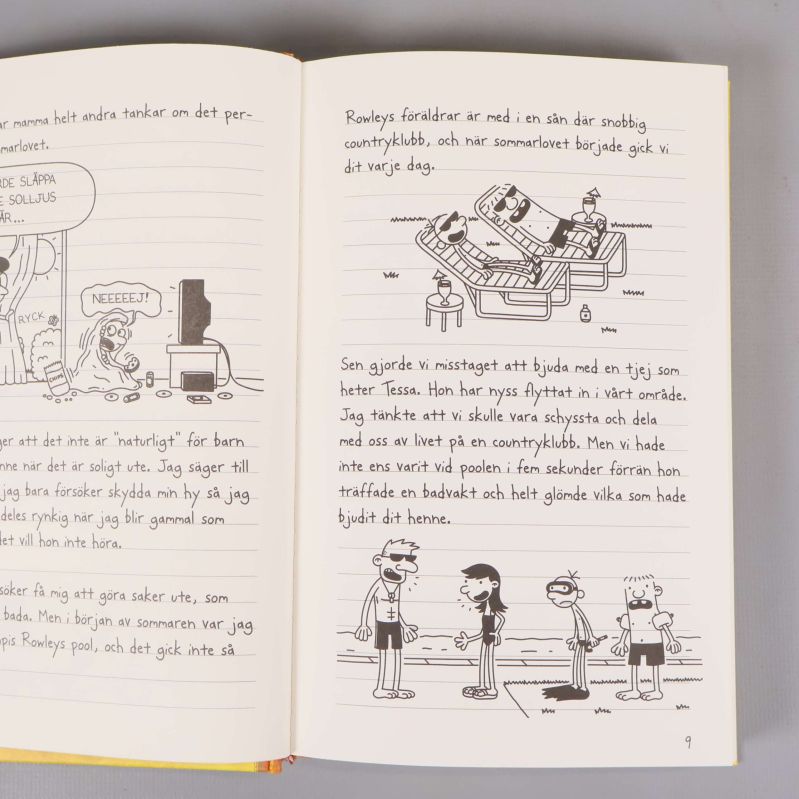 mamma helt andra tankar om det per-
marlovet.
SLÄPPA
SOLLJUS
NEEEEEJ!
RYCK
CHIPS
att det inte är "naturligt" för barn
när det är soligt ute. Jag säger till
jag bara försöker skydda min hy så jag
deles rynkig när jag blir gammal som
det vill hon inte höra.
få mig att göra saker ute, som
bada. Men i början av sommaren var jag
Rowleys pool, och det gick inte så
Rowleys föräldrar är med i en sån där snobbig
countryklubb, och när sommarlovet började gick vi
dit varje dag.
Sen gjorde vi misstaget att bjuda med en tjej som
heter Tessa. Hon har nyss flyttat in i vårt område.
Jag tänkte att vi skulle vara schyssta och dela
med oss av livet på en countryklubb. Men vi hade
inte ens varit vid poolen i fem sekunder förrän hon
träffade en badvakt och helt glömde vilka som hade
bjudit dit henne.
9